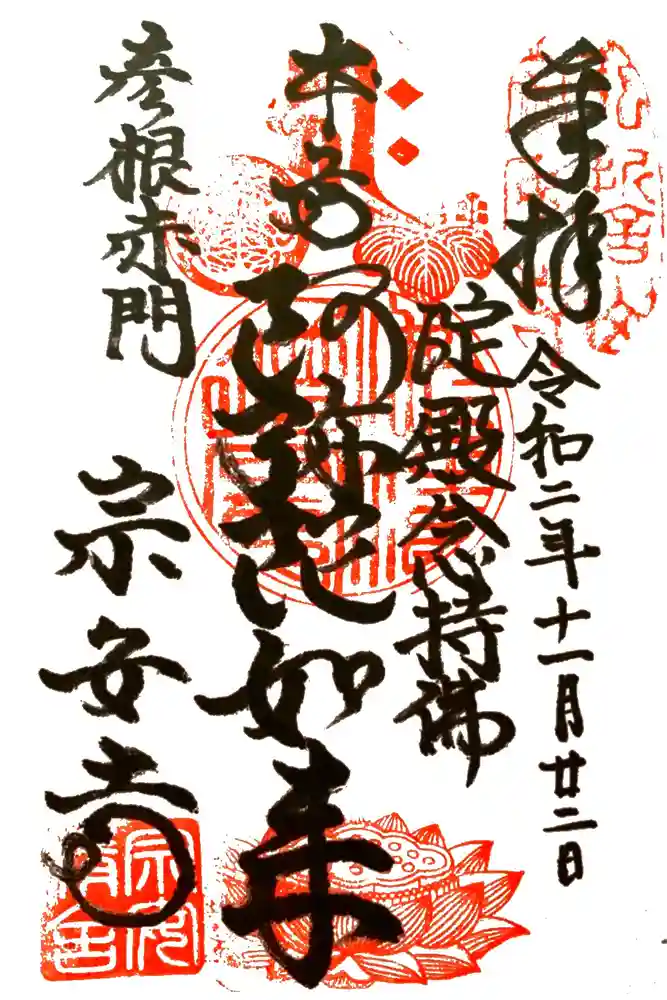 奉拝
令和二年十一月廿二日
淀殿念持佛
本尊
阿弥陀如来
彦根赤門
宗安寺